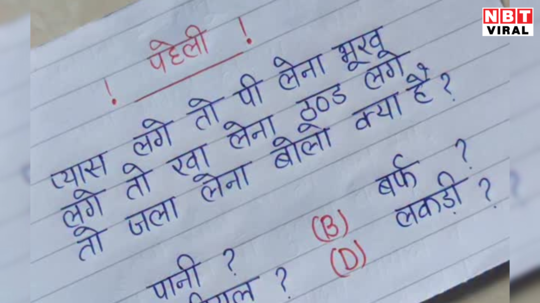 NBT
VIRAL
! पहेली !
प्यास लगे तो पी लेना भूख
लगे तो खा लेना ठण्ड लगे
तो जला लेना बोलो क्या है?
पानी ? (B) बर्फ ?
? (D) लकड़ी ?